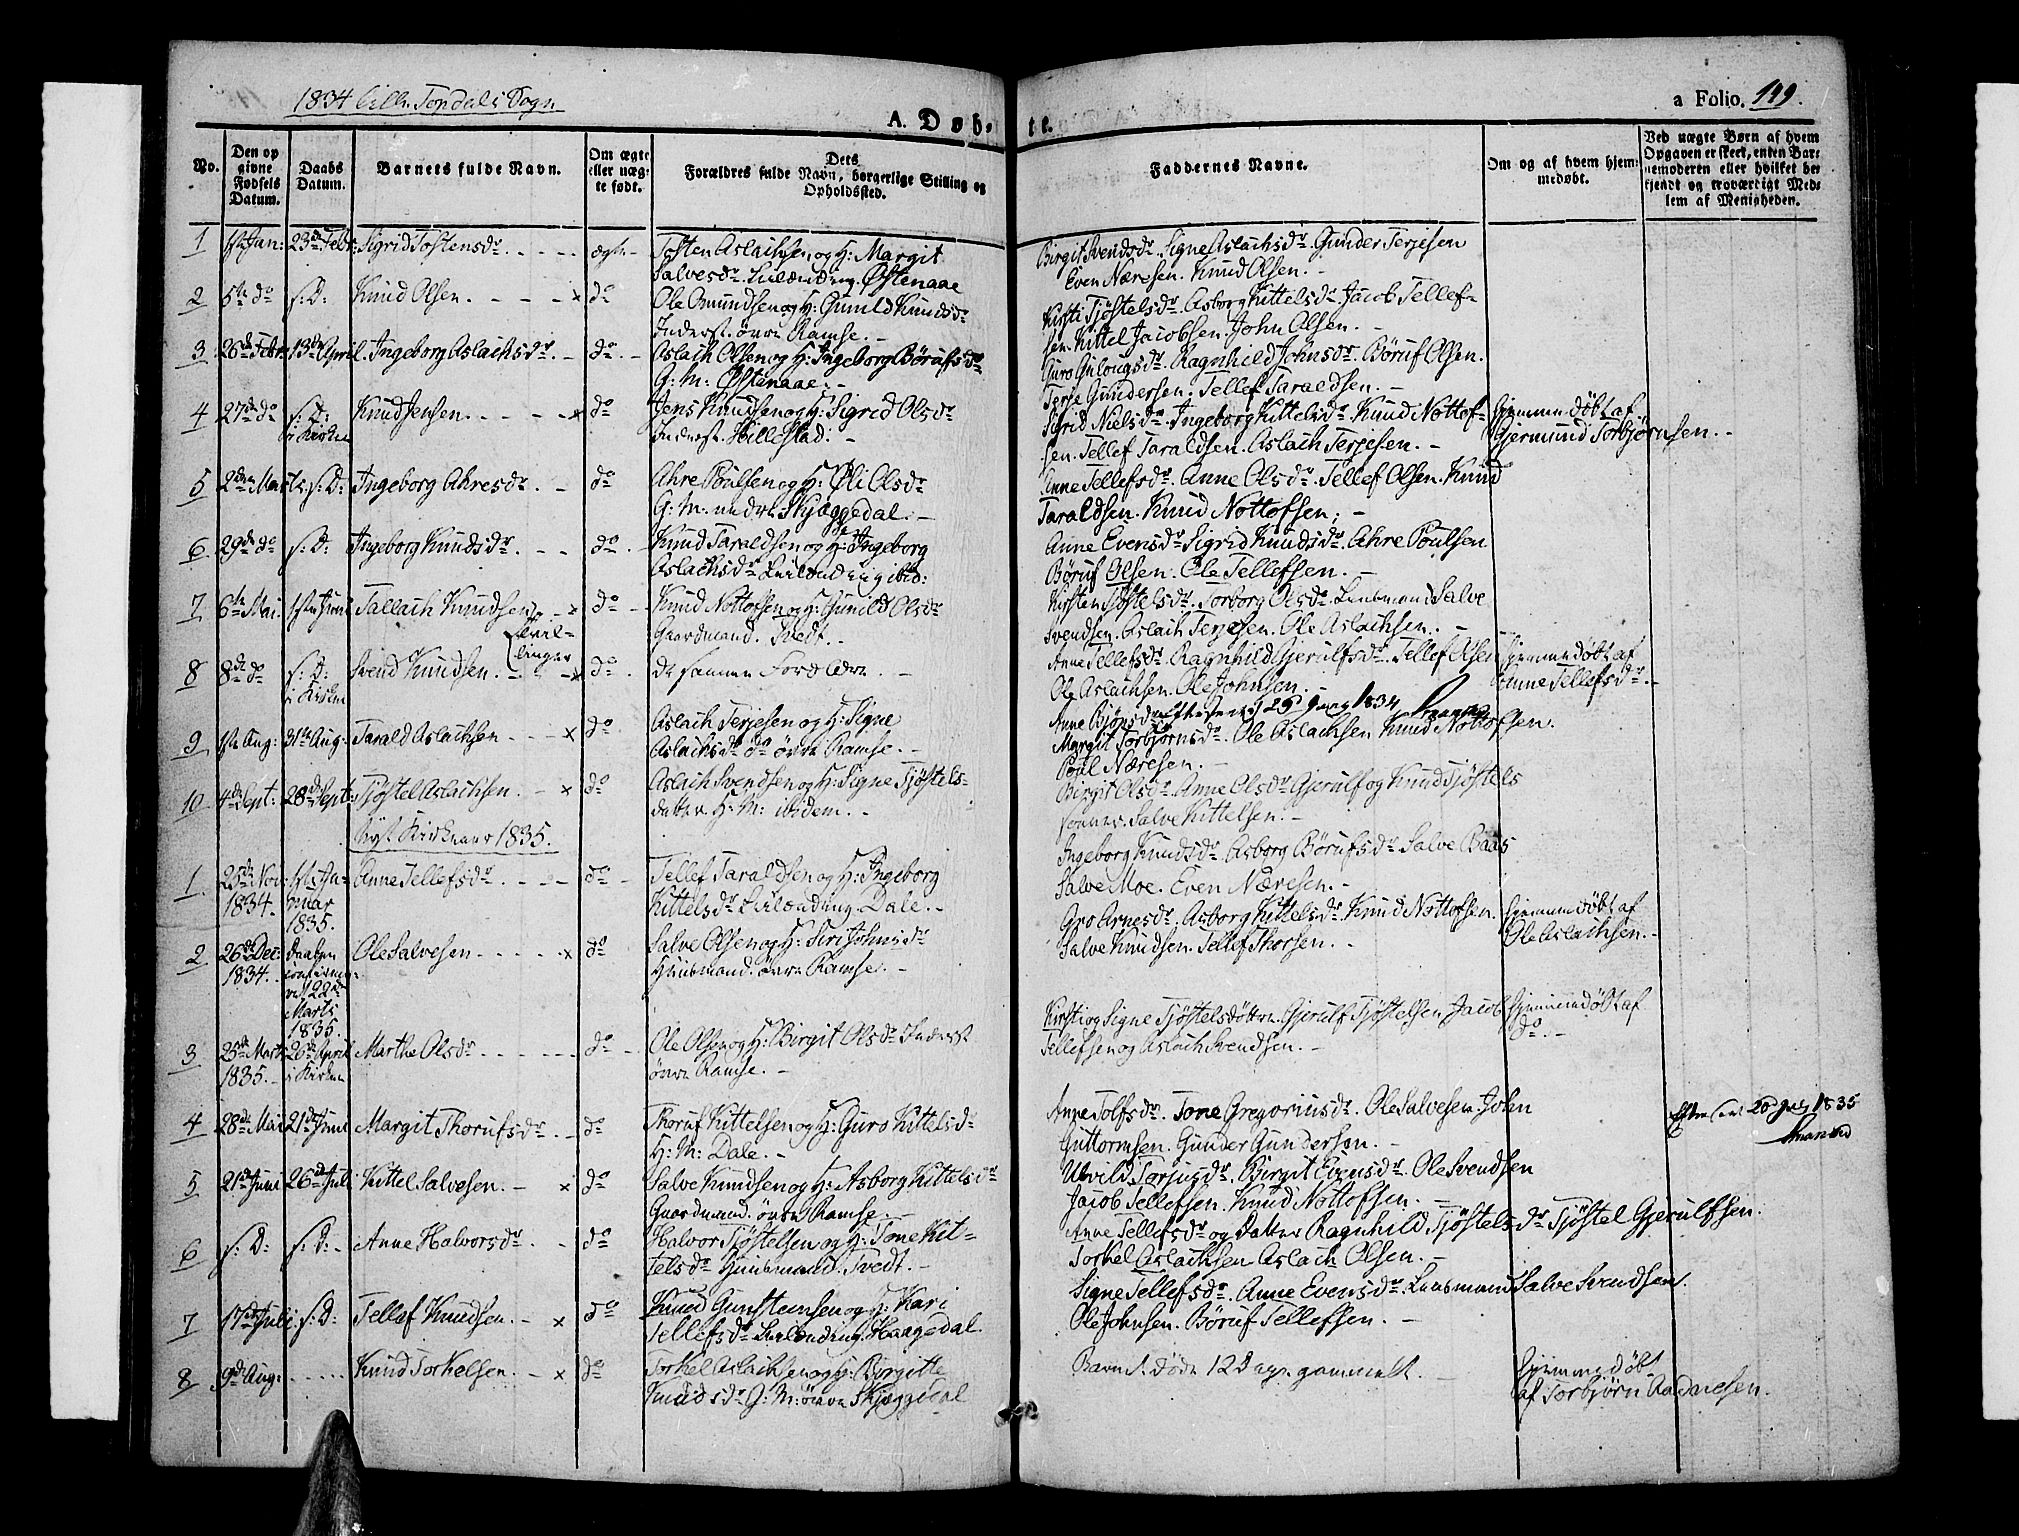 1834 Lille Topdals Sogn
A. Døbte.
a Folio. 149.
No.
Den op
givne
Fødsels
Datum.
Daabs
Datum.
Barnets fulde Navn.
Om ægte
eller uæg-
te født.
Dets
Forældres fulde Navn, borgerlige Stilling og
Opholdssted.
Faddernes Navne.
Om og af hvem hjem-
medøbt.
Ved uægte Børn af hvem
Opgaven er skeet, enten Bar-
nemoderen eller hvilket be-
kjendt og troværdigt Med-
lem af Menigheden.
1 1ste Jan: 23de Febr: Sigrid Tostensdr ægte Tosten Aslachsen og H: Margit
Salvesdr Leilænding Østenaae
Birgit Svendsdr. Signe Aslachsdr. Gunder Terjesen
Even Næresen. Knud Olsen.
2 5te do s: D: Knud Olsen x do Ole Omundsen og H: Gunild Knudsdr
Inderst. øvre Ramse.
Kirsti Tjöstelsdr. Asborg Kittelsdr. Jacob Tellef-
sen. Kittel Jacobsen. John Olsen.
3 26de Febr: 13de April Ingeborg Aslachsdr do Aslach Olsen og H: Ingeborg Börufsdr
G: M: Østenaae.
Guro Gulougsdr. Ragnhild Johnsdr. Böruf Olsen.
Terje Gundersen. Tellef Taraldsen.
4 27de do s: D: i Kirken Knud Jensen x do Jens Knudsen og H: Sigrid Olsdr
Inderst. Hillestad.
Sigrid Nielsdr. Ingeborg Kittelsdr. Knud Nottof-
sen. Tellef Taraldsen. Aslach Terjesen.
Hjemmedöbt af
Gjermund Torbjörnsen.
5 s: D: Ingeborg Ahresdr do Ahre Poulsen og H: Øli Olsdr
G: M. nedre Skjæggedal.
Anne Tellefsdr. Anne Olsdr. Tellef Olsen. Knud
Taraldsen. Knud Nottofsen.
6 29de do s: D: Ingeborg Knudsdr do Knud Taraldsen og H: Ingeborg
Aslachsdr Leilænding ibid:
Anne Evensdr Sigrid Knudsdr. Ahre Poulsen
Böruf Olsen. Ole Tellefsen.
7 6te Mai 1ste Juni Tallach Knudsen x do Knud Nottofsen og H: Gunild Olsdr
Gaardmand. Tvedt.
Tvil-
linger
Kirsten Tjöstelsdr. Torborg Olsdr. Lensmand Salve
Svendsen. Aslach Terjesen. Ole Aslachsen.
8 8de do s: D: i Kirken Svend Knudsen x do de samme Forældre.
Anne Tellefsdr. Ragnhild Gjerulfsdr. Tellef Olsen
Ole Aslachsen. Ole Johnsen.
Hjemmedöbt af
Anne Tellefsdr.
9 1ste Aug: 31te Aug: Tarald Aslachsen x do Aslach Terjesen og H: Signe
Aslachsdr do øvre Ramse.
1834
Margit Torbjörnsdr. Ole Aslachsen Knud Nottofsen.
Poul Næresen.
10 4de Sept: 28de Sept: Tjöstel Aslachsen x do Aslach Svendsen og H: Signe Tjöstels-
datter H: M: ibidem.
Birgit Olsdr. Anne Olsdr Gjerulf og Knud Tjöstels
sönner Salve Kittelsen.
Nyt Kirkeaar 1835.
1 25de Nov: 1834. 1ste Ja-
nuar
1835. Anne Tellefsdr do Tellef Taraldsen og H: Ingeborg
Kittelsdr Leilænding Dale.
Ingeborg Knudsdr. Asborg Börufsdr Salve Baas
Salve Moe. Even Næresen.
2 26de Dec: 1834. Daaben
confirme-
ret 22de
Marts
1835. Ole Salvesen x do Salve Olsen og H: Siri Johnsdr
Huusmand øvre Ramse.
Gro Arnesdr. Asborg Kittelsdr. Knud Nottofsen.
Salve Knudsen. Tellef Thorsen.
Hjemmedöbt af
Ole Aslachsen.
3 25de Marts 1835. 26de April i Kirken Marthe Olsdr do Ole Olsen og H: Birgit Olsdr Inderst
øvre Ramse.
Kirsti og Signe Tjöstelsdöttre. Gjerulf Tjöstelsen Jacob
Tellefsen og Aslach Svendsen.
Hjemmedöbt af
do.
4 28de Mai 21de Juni Margit Thorufsdr do Thoruf Kittelsen og H: Guro Kittelsdr
H: M: Dale.
Anne Tolfsdr. Tone Gregoriusdr. Ole Salvesen. John
Guttormsen. Gunder Gundersen.
1835
5 21de Juni 26de Juli Kittel Salvesen x do Salve Knudsen og H: Asborg Kittelsdr
Gaardmand. øvre Ramse.
Torjusdr. Birgit Evensdr. Ole Svendsen
Jacob Tellefsen. Knud Nottofsen.
6 s: D: s: D: Anne Halvorsdr do Halvor Tjöstelsen og H: Tone Kit-
telsdr Huusmand. Tvedt.
Anne Tellefsdr og Datter Ragnhild Tjöstelsdr Tjöstel Gjerulfsen.
Torkel Aslachsen Aslach Olsen.
7 17de Juli s: D: Tellef Knudsen x do Knud Gunsteinsen og H: Kari
Tellefsdr Leilænding. Haagedal.
Signe Tellefsdr. Anne Evensdr. Lensmand Salve Svendsen.
Ole Johnsen. Böruf Tellefsen.
8 9de Aug: Knud Torkelsen x do Torkel Aslachsen og H: Birgitte
Knudsdr G: M: øvre Skjæggedal
Barnet döde 12 Dage gammelt.
Hjemmedöbt
af Torbjörn Aadnesen.